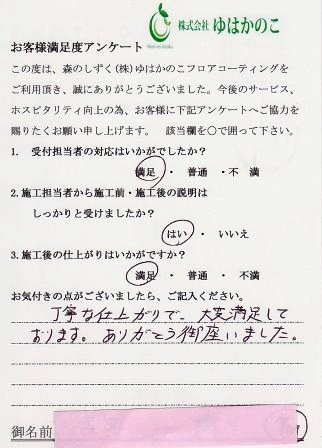 株式会社 ゆはかのこ
お客様満足度アンケート
この度は、森のしずく(株)ゆはかのこフロアコーティングを
ご利用頂き、誠にありがとうございました。今後のサービス、
ホスピタリティ向上の為、お客様に下記アンケートへご協力を
賜りたくお願い申し上げます。 該当欄を〇で囲って下さい。
1. 受付担当者の対応はいかがでしたか？
満足 ・ 普通 ・ 不 満
2.施工担当者から施工前・施工後の説明は
しっかりと受けましたか？
はい ・ いいえ
3.施工後の仕上がりはいかがですか？
満足 ・ 普通 ・ 不満
お気付きの点がございましたら、ご記入ください。
丁寧な仕上がりで、大変満足して
おります。ありがとう御座いました。
御名前